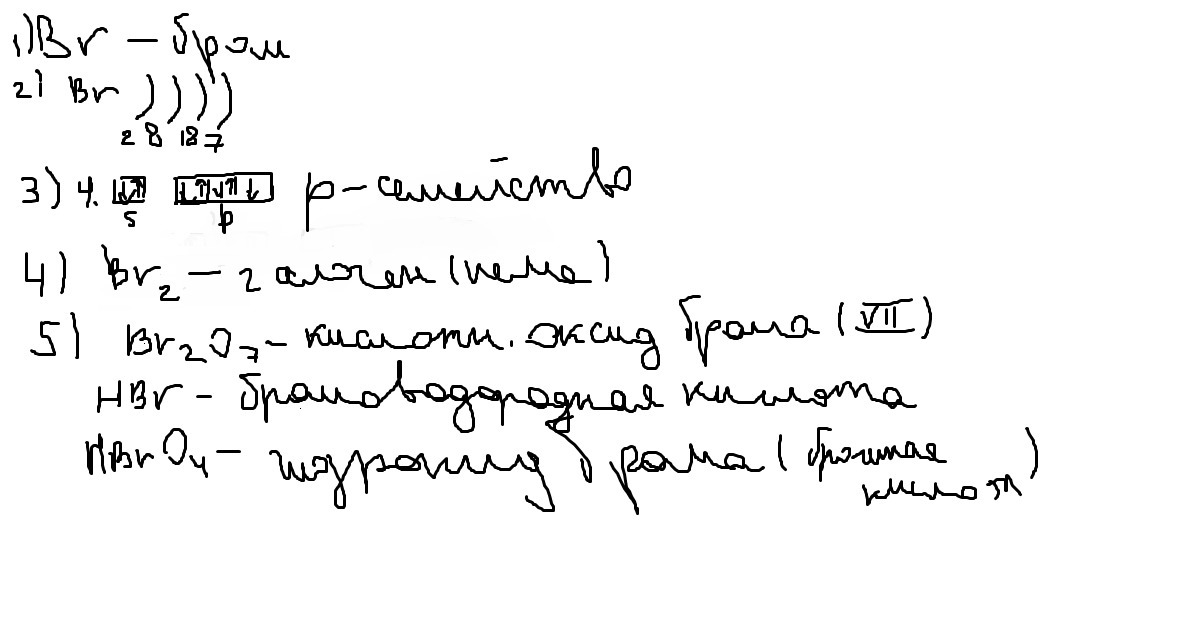 1) Br – бром
2) Br ) ) ) )
2 8 18 7
3) 4. ↓↑ ↓↑↓↑↓ p – семейство
s p
4) Br₂ – галоген (неме)
5) Br₂O₇ – кислотн. оксид брома (VII)
HBr – бромоводородная кислота
HBrO₄ – гидроксид брома (бромная
кислота)